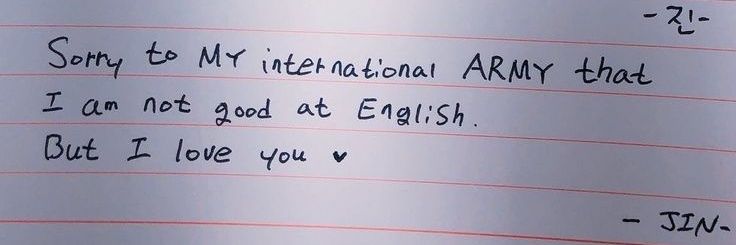 -진-
Sorry to MY international ARMY that
I am not good at English.
But I love you ♥
- JIN-